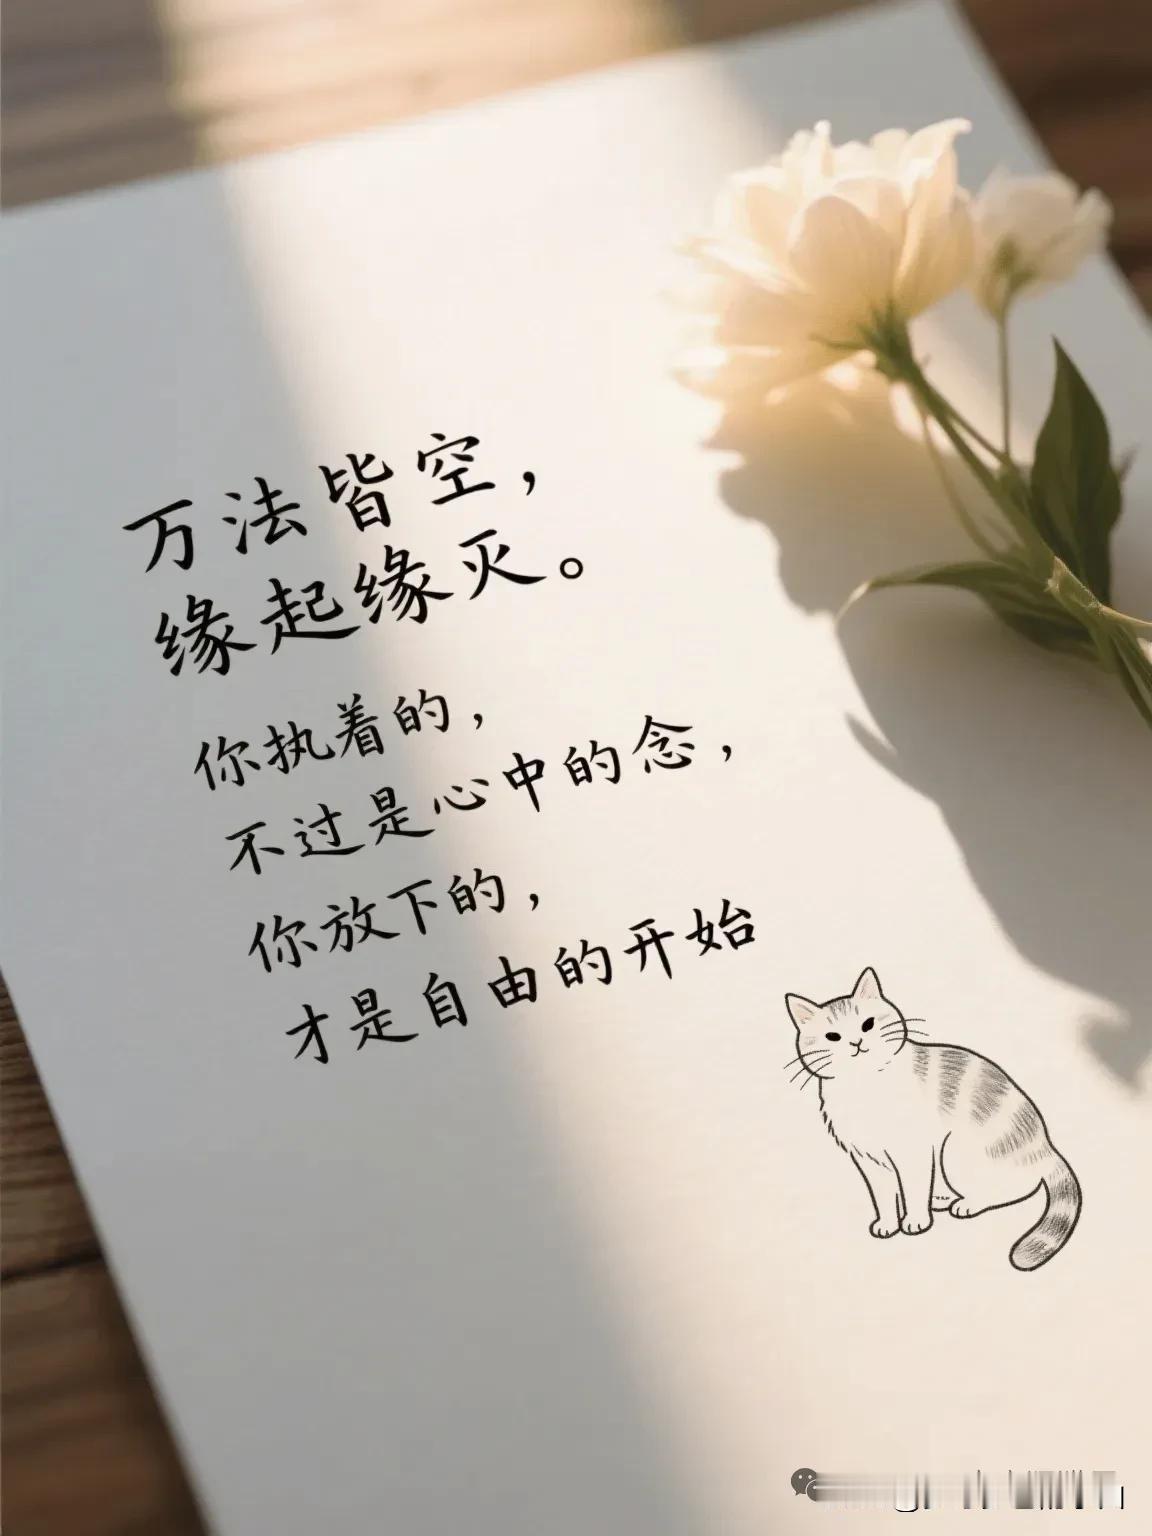 万法皆空，
缘起缘灭。
你执着的，
不过是心中的念，
你放下的，
才是自由的开始